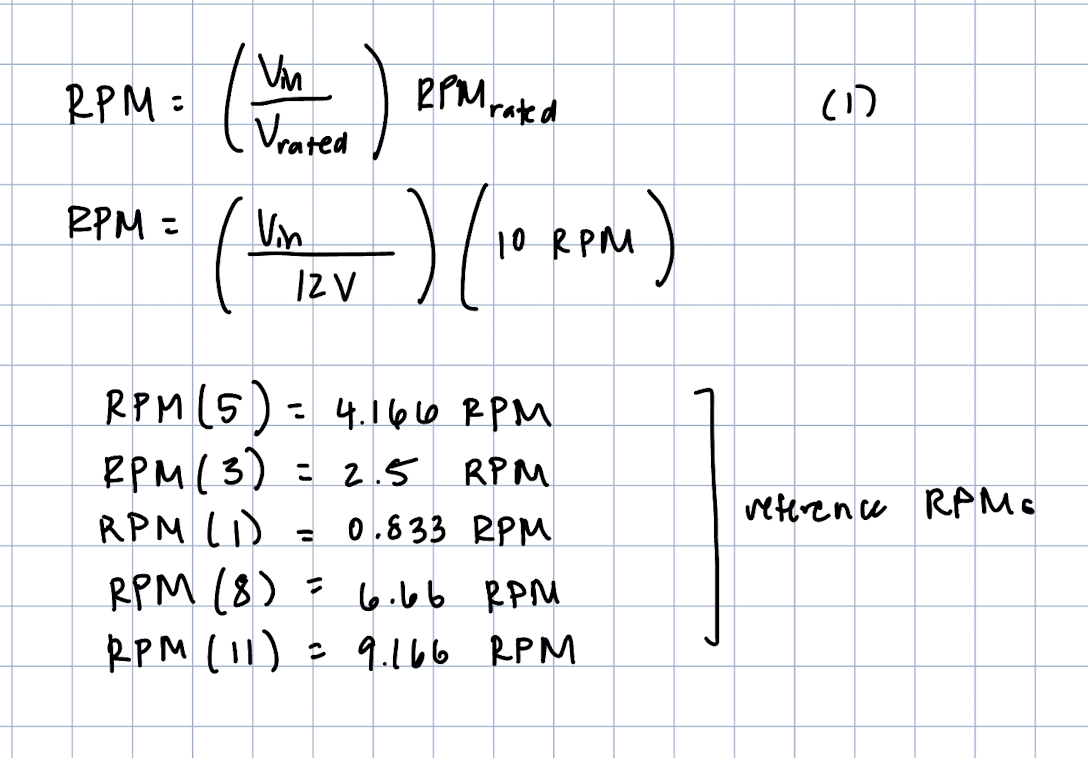 RPM = (Vin / Vrated) RPMrated (1)
RPM = (Vin / 12V) (10 RPM)
RPM(5) = 4.166 RPM
RPM(3) = 2.5 RPM
RPM(1) = 0.833 RPM
RPM(8) = 6.66 RPM
RPM(11) = 9.166 RPM
reference RPMs